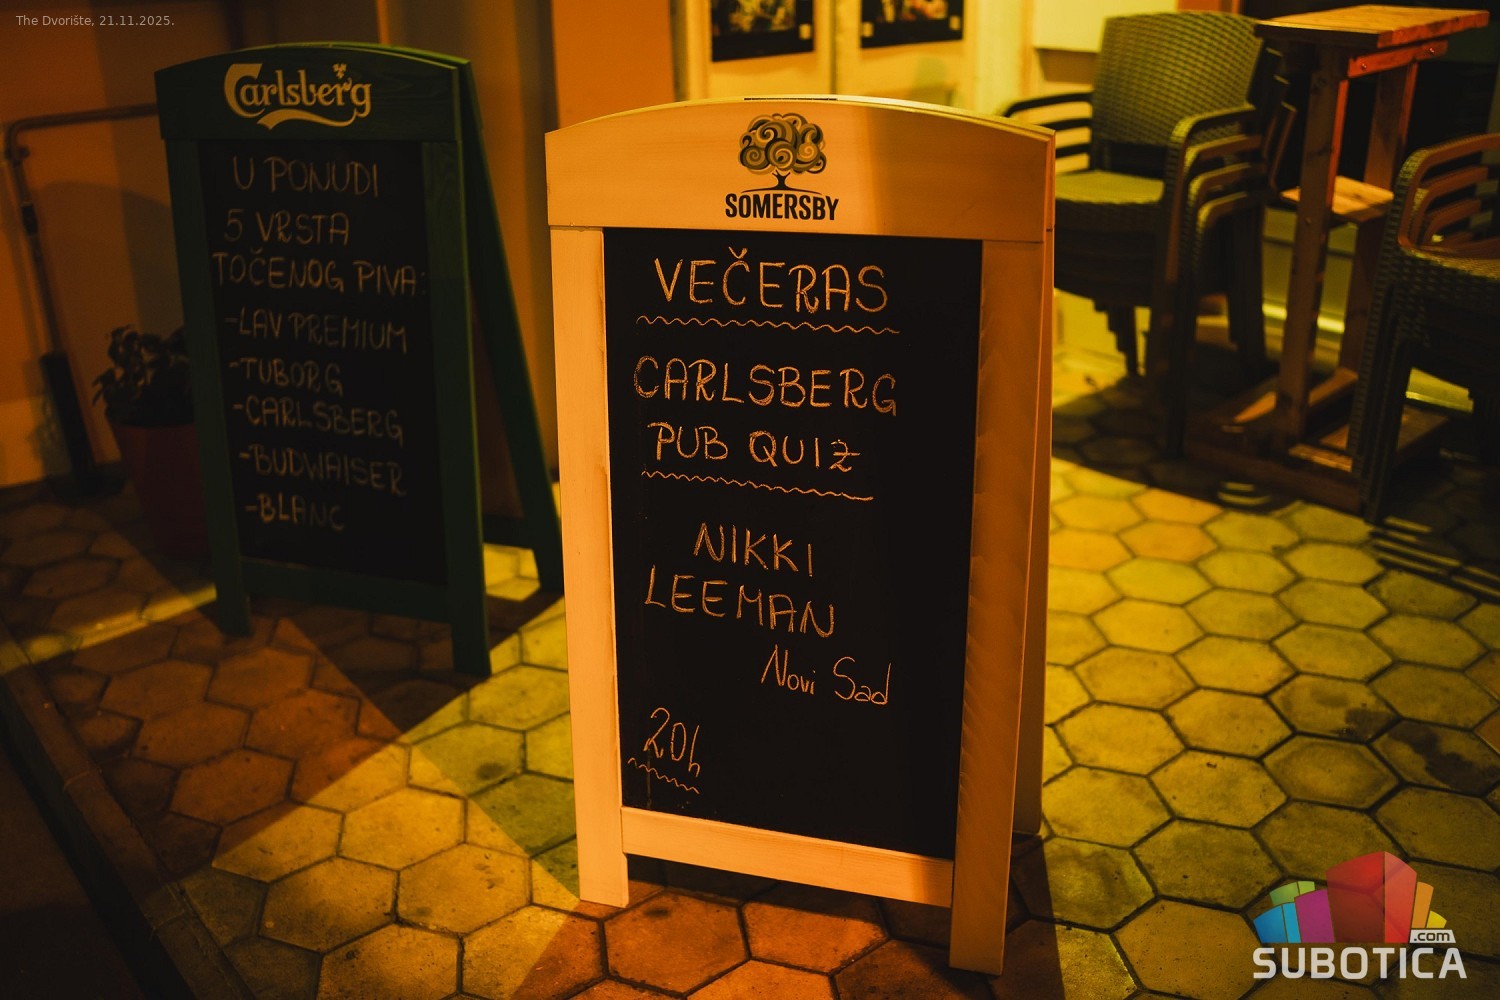 The Dvorište, 21.11.2025.
Carlsberg
U PONUDI
5 VRSTA
TOČENOG PIVA:
-LAV PREMIUM
-TUBORG
-CARLSBERG
-BUDWAISER
-BLANC
SOMERSBY
VEČERAS
CARLSBERG
PUB QUIZ
NIKKI
LEEMAN
Novi Sad
20h
.com
SUBOTICA